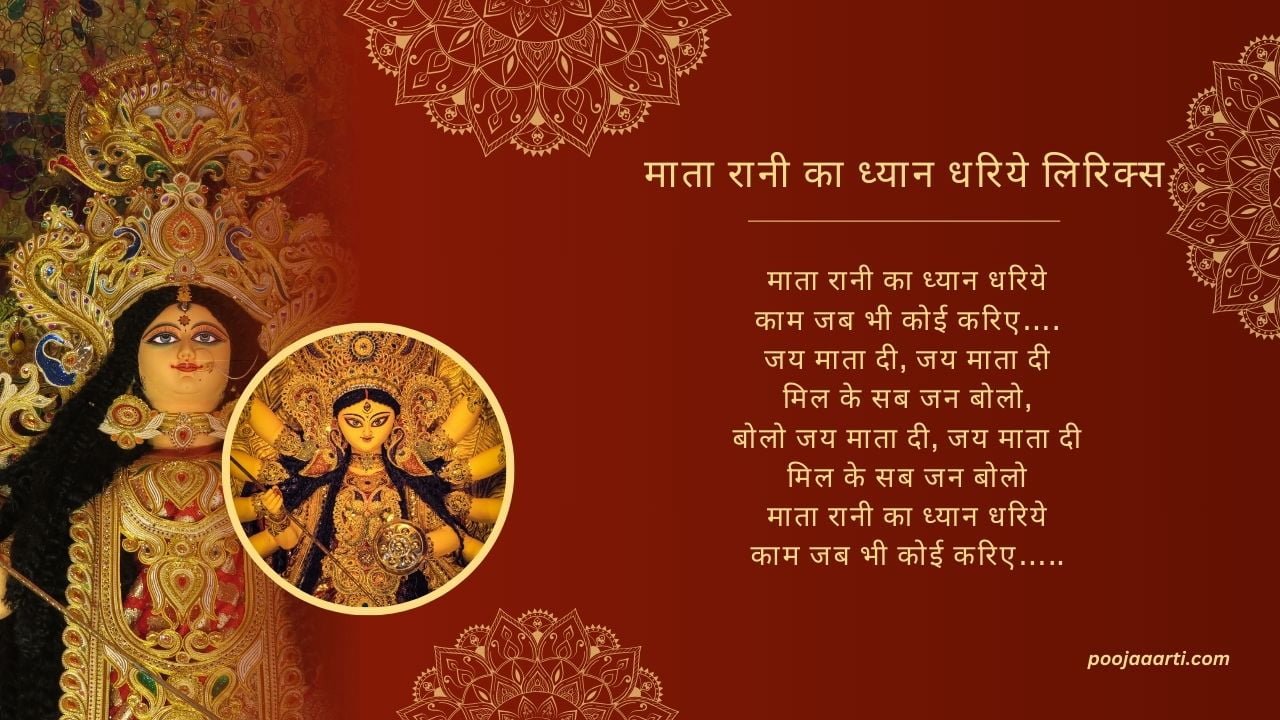 माता रानी का ध्यान धरिये लिरिक्स
माता रानी का ध्यान धरिये
काम जब भी कोई करिए....
जय माता दी, जय माता दी
मिल के सब जन बोलो,
बोलो जय माता दी, जय माता दी
मिल के सब जन बोलो
माता रानी का ध्यान धरिये
काम जब भी कोई करिए.....
poojaaarti.com